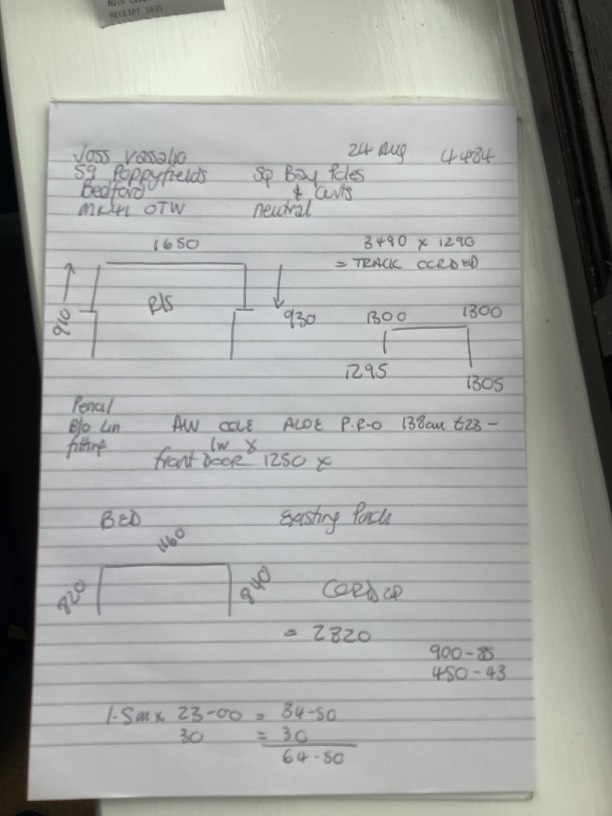 RECEIPT 1035
Joss Vassallo 24 Aug 4484
59 Poppyfields Sq Bay Poles
Bedford & Cuts
MK41 OTW neutral
1650 3490 x 1290
= TRACK CORDED
910 R/S 930 1300 1300
1295 1305
Pencil
B/O Lin AW COLE ALOE P.R-O 138cm £23-
fitting
front Door 1250 x
BED Existing Pinch
1160
820 840 CORD UP
= 2820
900-85
450-43
1.5m x 23-00 = 34-50
30 = 30
64-50